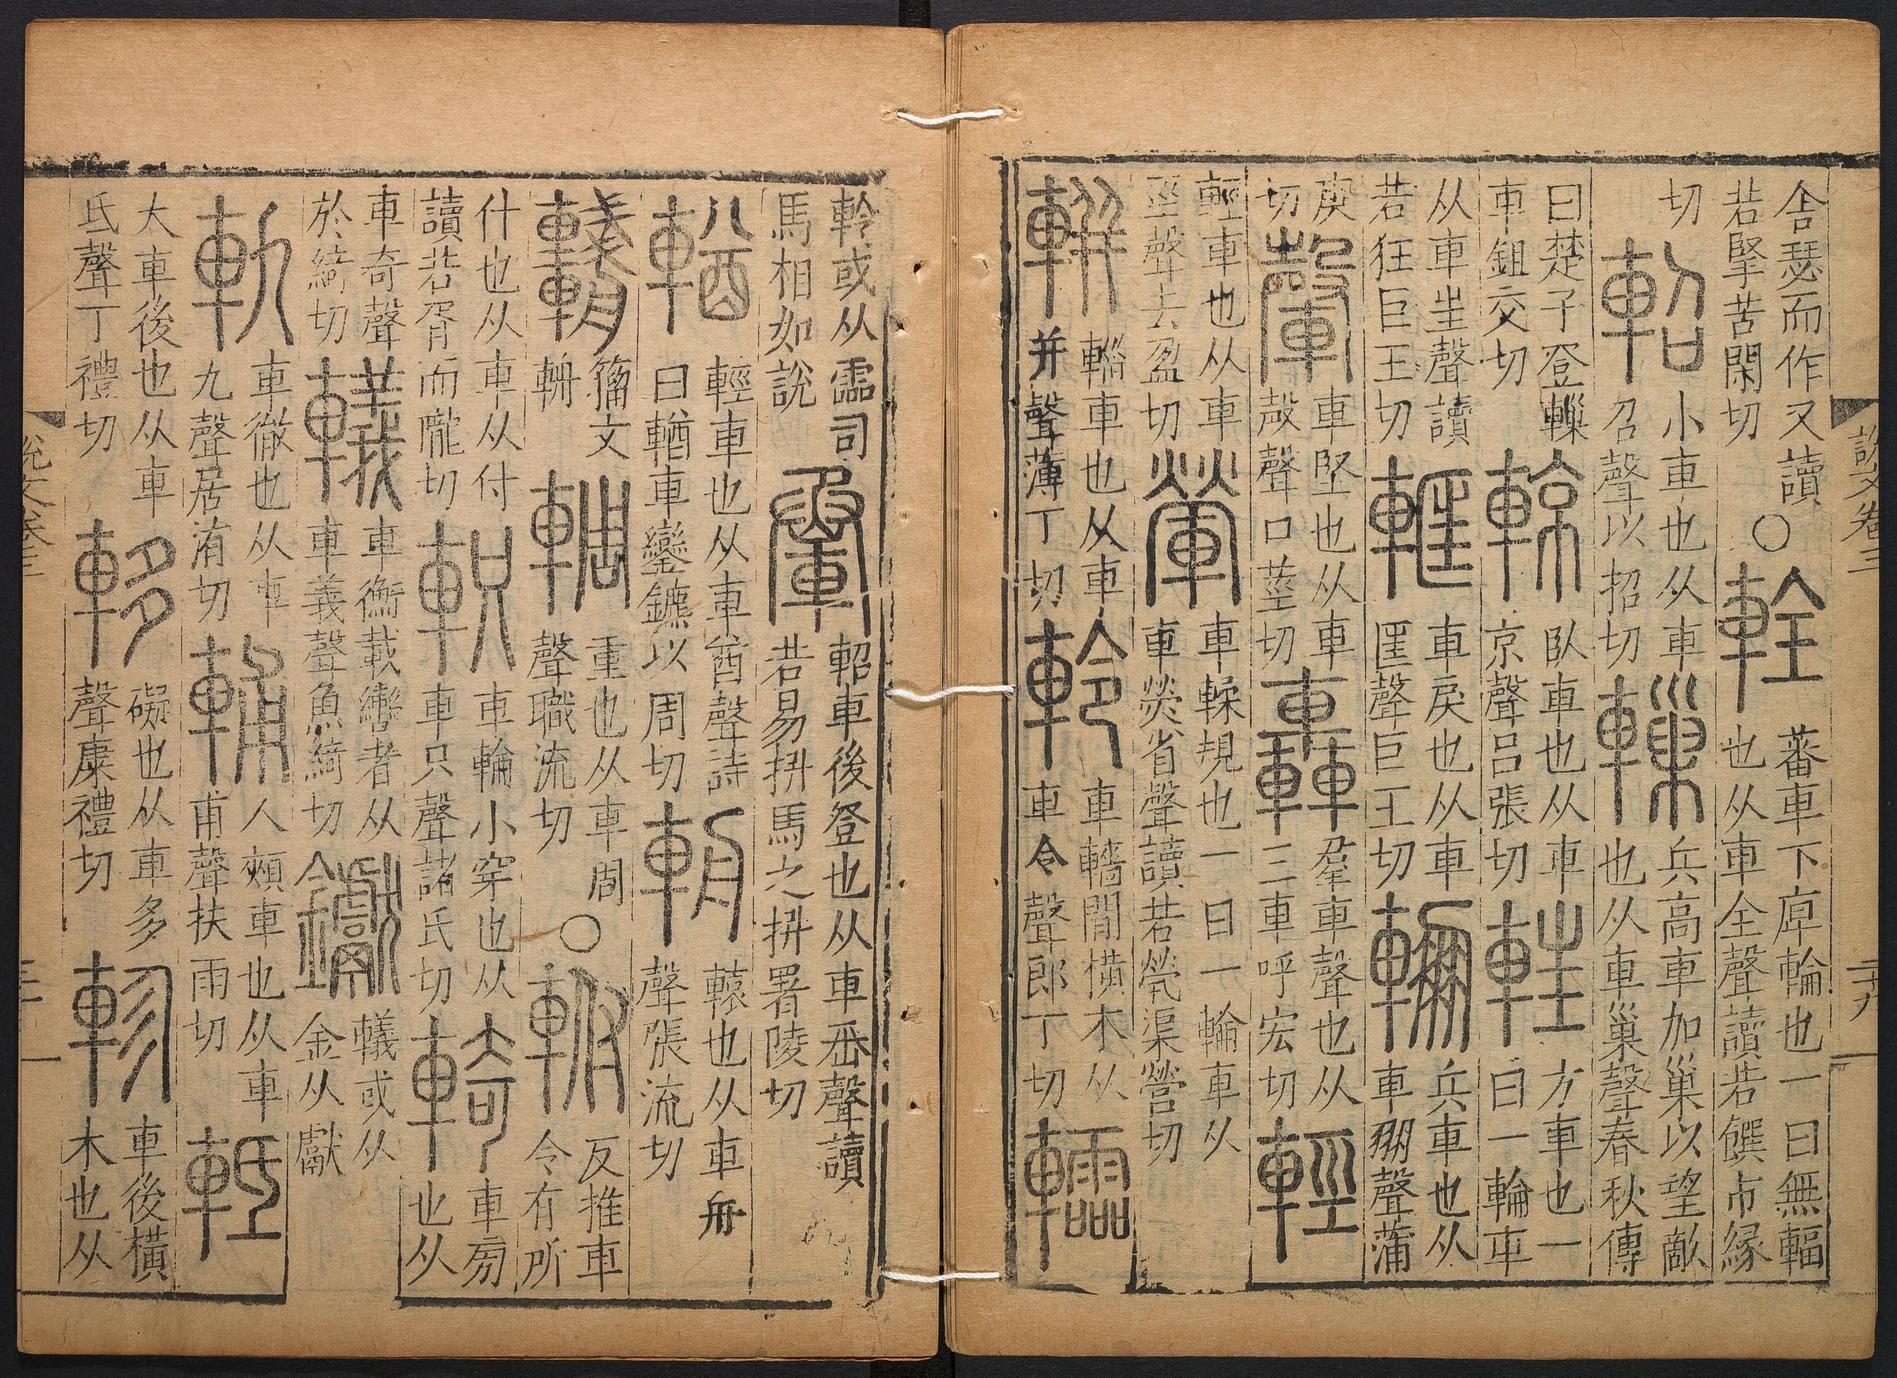 說文卷三
二十九
舎瑟而作又讀
若掔苦閑切
〇
輇
蕃車下庳輪也一曰無輻
也从車全聲讀若饌市緣
切
軺
小車也从車
召聲以招切
轈
兵高車加巢以望敵
也从車巢聲春秋傳
曰楚子登轈
車鉏交切
輬
臥車也从車
京聲呂張切
軖
方車也一
曰一輪車
从車㞷聲讀
若狂巨王切
軭
車戾也从車
匡聲巨王切
輣
兵車也从
車朋聲蒲
庚
切
車堅也从車
殸聲口莖切
轟
羣車聲也从
三車呼宏切
輕
輕車也从車
巠聲去盈切
車輮規也一曰一輪車从
車熒省聲讀若煢渠營切
軿
輜車也从車
并聲薄丁切
軨
車轖間橫木从
車令聲郎丁切
軨或从霝司
馬相如說
軺車後登也从車丞聲讀
若易抍馬之抍署陵切
輶
輕車也从車酋聲詩
曰輶車鑾鑣以周切
輈
轅也从車舟
聲張流切
籀文
輈
輖
重也从車周
聲職流切
〇
軵
反推車
令有所
什也从車从付
讀若胥而隴切
軹
車輪小穿也从
車只聲諸氏切
輢
車旁
也从
車奇聲
於綺切
轙
車衡載轡者从
車義聲魚綺切
钀
轙或从
金从獻
軌
車徹也从車
九聲居洧切
輔
人頰車也从車
甫聲扶雨切
軧
大車後也从車
氐聲丁禮切
礙也从車多
聲康禮切
軫
車後橫
木也从
說文卷三
三十